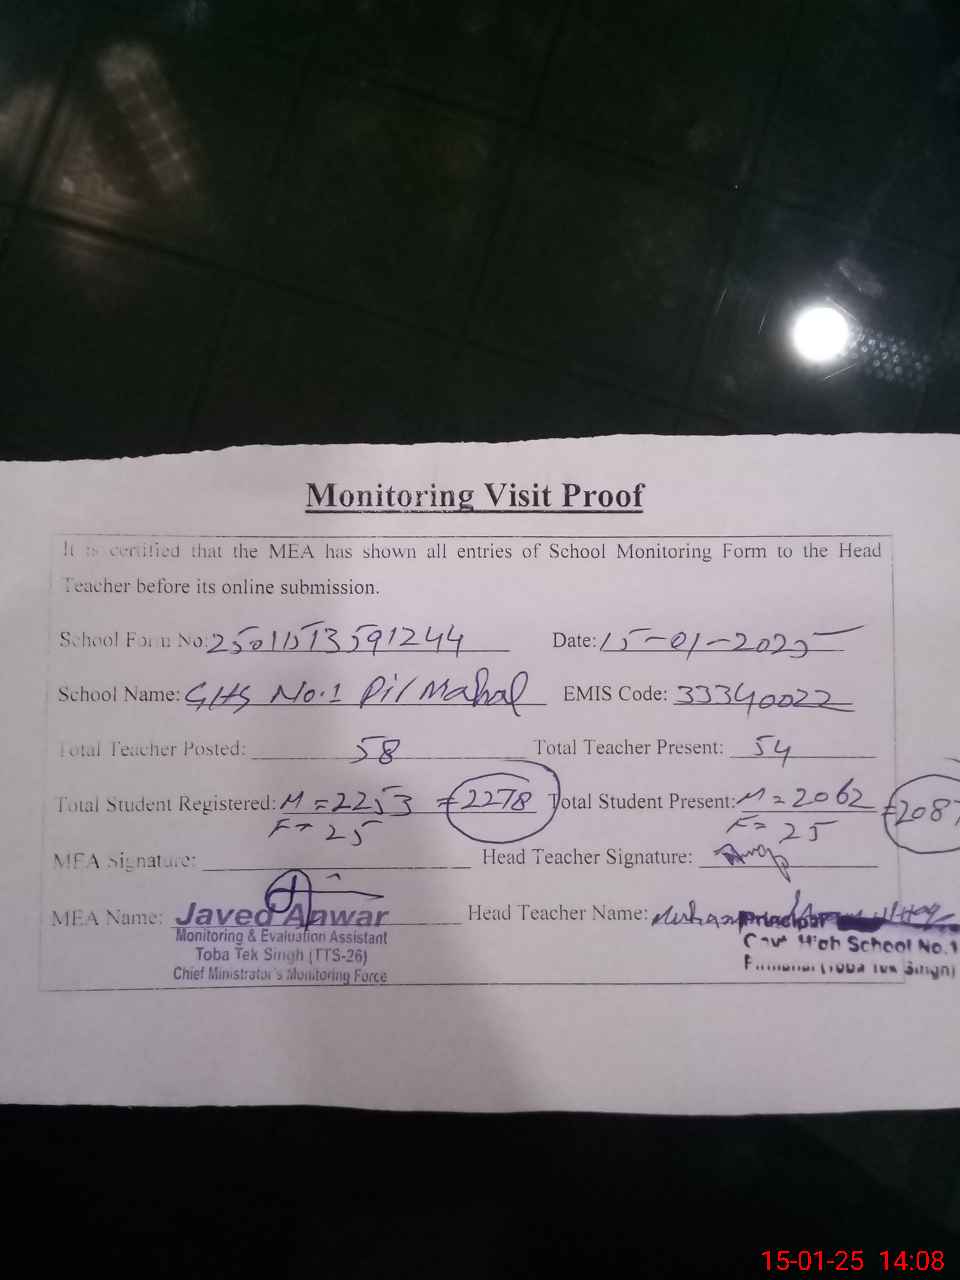 Monitoring Visit Proof
It is certified that the MEA has shown all entries of School Monitoring Form to the Head
Teacher before its online submission.
School Form No: 25011513591244 Date: 15-01-2025
School Name: GHS No.1 Pir Mahal EMIS Code: 33340022
Total Teacher Posted: 58 Total Teacher Present: 54
Total Student Registered: M = 2253 = 2278 Total Student Present: M = 2062 = 2087
F = 25 F = 25
MEA Signature: Head Teacher Signature:
MEA Name: Javed Anwar Head Teacher Name: Principal
Monitoring & Evaluation Assistant
Govt High School No.1
Toba Tek Singh (TTS-26)
(Toba Tek Singh)
Chief Minister's Monitoring Force
15-01-25 14:08